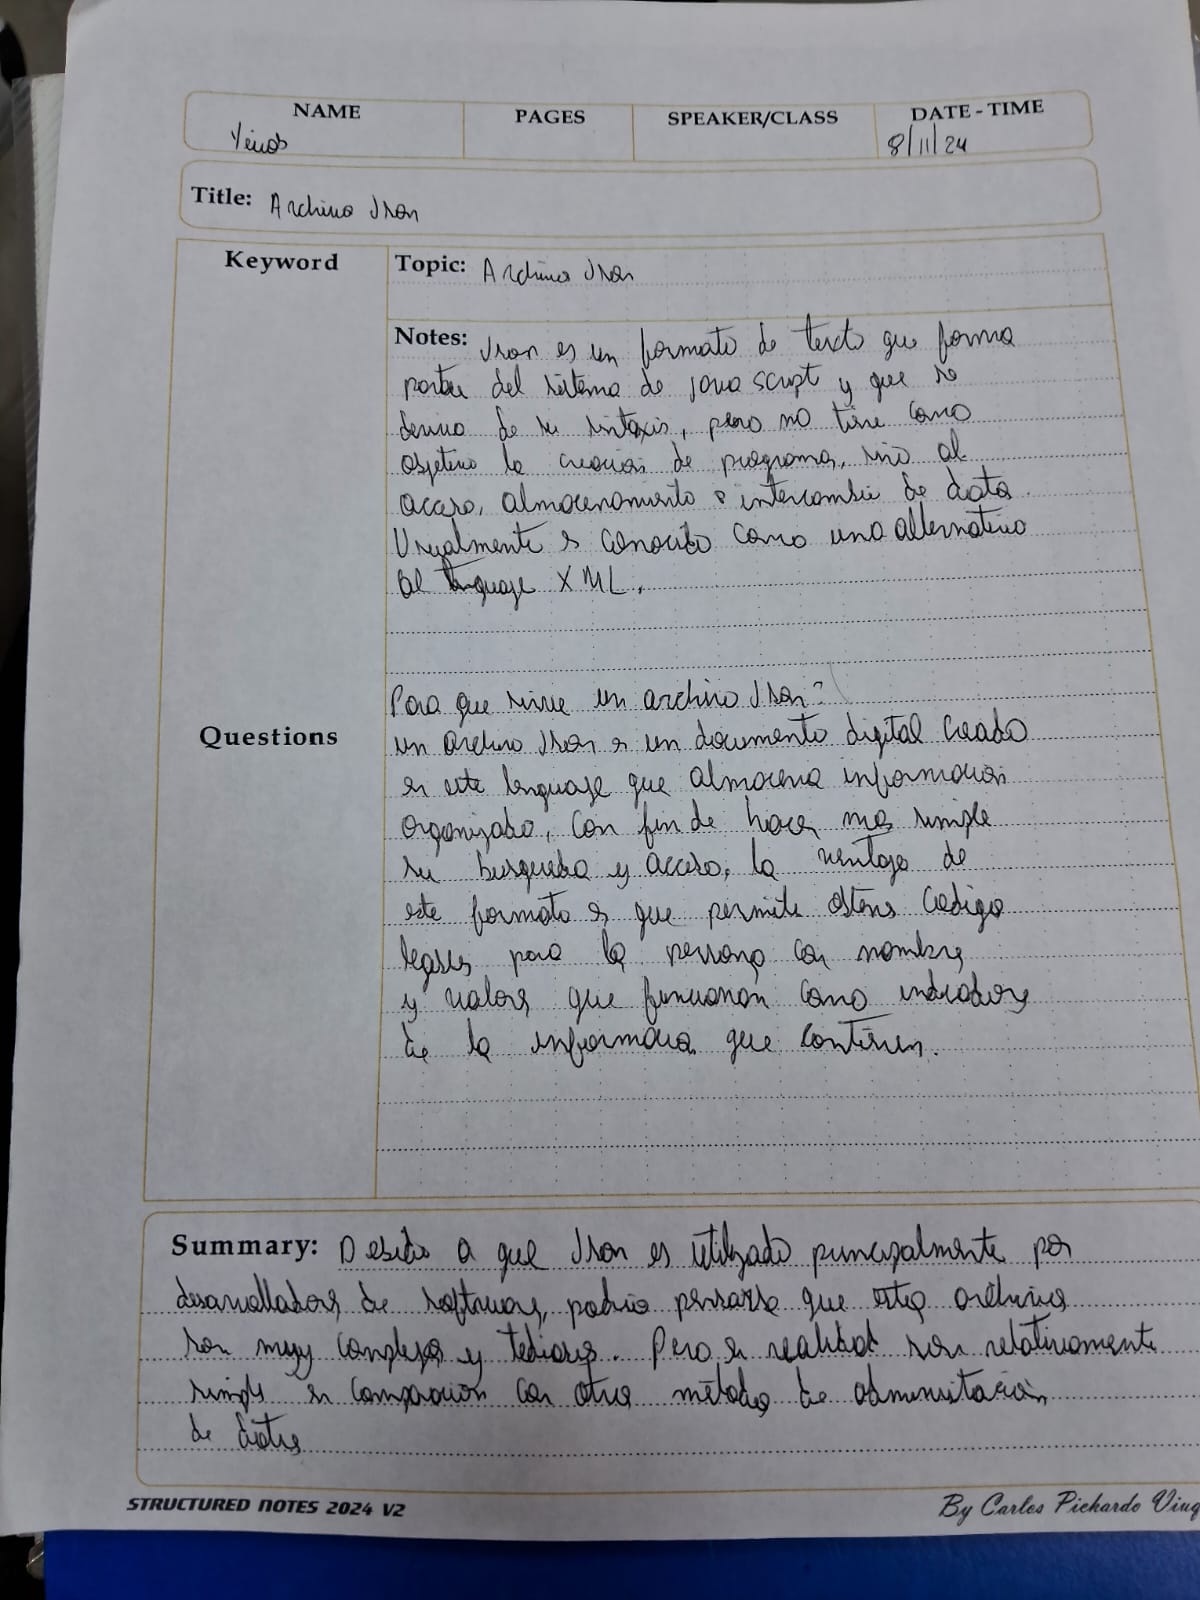 NAME PAGES SPEAKER/CLASS DATE - TIME
8/11/24
Title: Archivo Json
Keyword
Topic: Archivo Json
Notes: Json es un formato de texto que forma
parte del sistema de java script y que se
deriva de su sintaxis, pero no tiene como
objetivo la creacion de programa, sino al
acceso, almacenamiento e intercambio de data.
Usualmente es conocido como una alternativa
al lenguaje XML.
Para que sirve un archivo Json?
Questions
un archivo Json es un documento digital creado
en este lenguaje que almacena informacion
organizada, con fin de hacer mas simple
su busqueda y acceso, la ventaja de
este formato es que permite obtener codigo
legible para la persona con nombres
y valores que funcionan como indicadores
de la informacion que contienen.
Summary: Debido a que Json es utilizado principalmente por
desarrolladores de software, podria pensarse que estos archivos
son muy complejos y tediosos. Pero en realidad son relativamente
simple en comparacion con otros métodos de administracion
de datos
STRUCTURED NOTES 2024 V2
By Carlos Pichardo